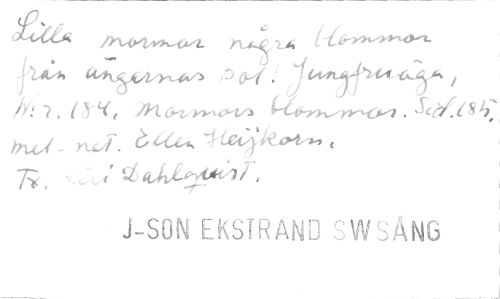 Lilla mormor några blommor
från ängarnas sol! Jungfruöga,
N:r. 184. Mormors blommor. Sid. 185.
mel - nat. Ellen Heijkorn.
Tx. Dahlqvist.
J-SON EKSTRAND SWSÅNG